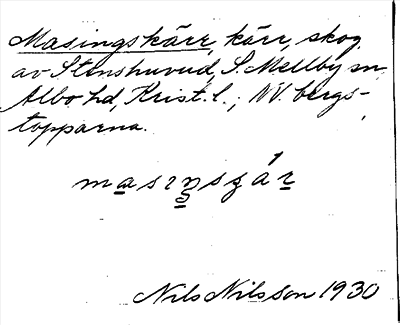 Masingskärr, kärr, skog
av Stenshuvud, S. Mellby sn,
Albo hd, Krist. l.; NV. bergs-
topparna.
masıŋsʂár
Nils Nilsson 1930